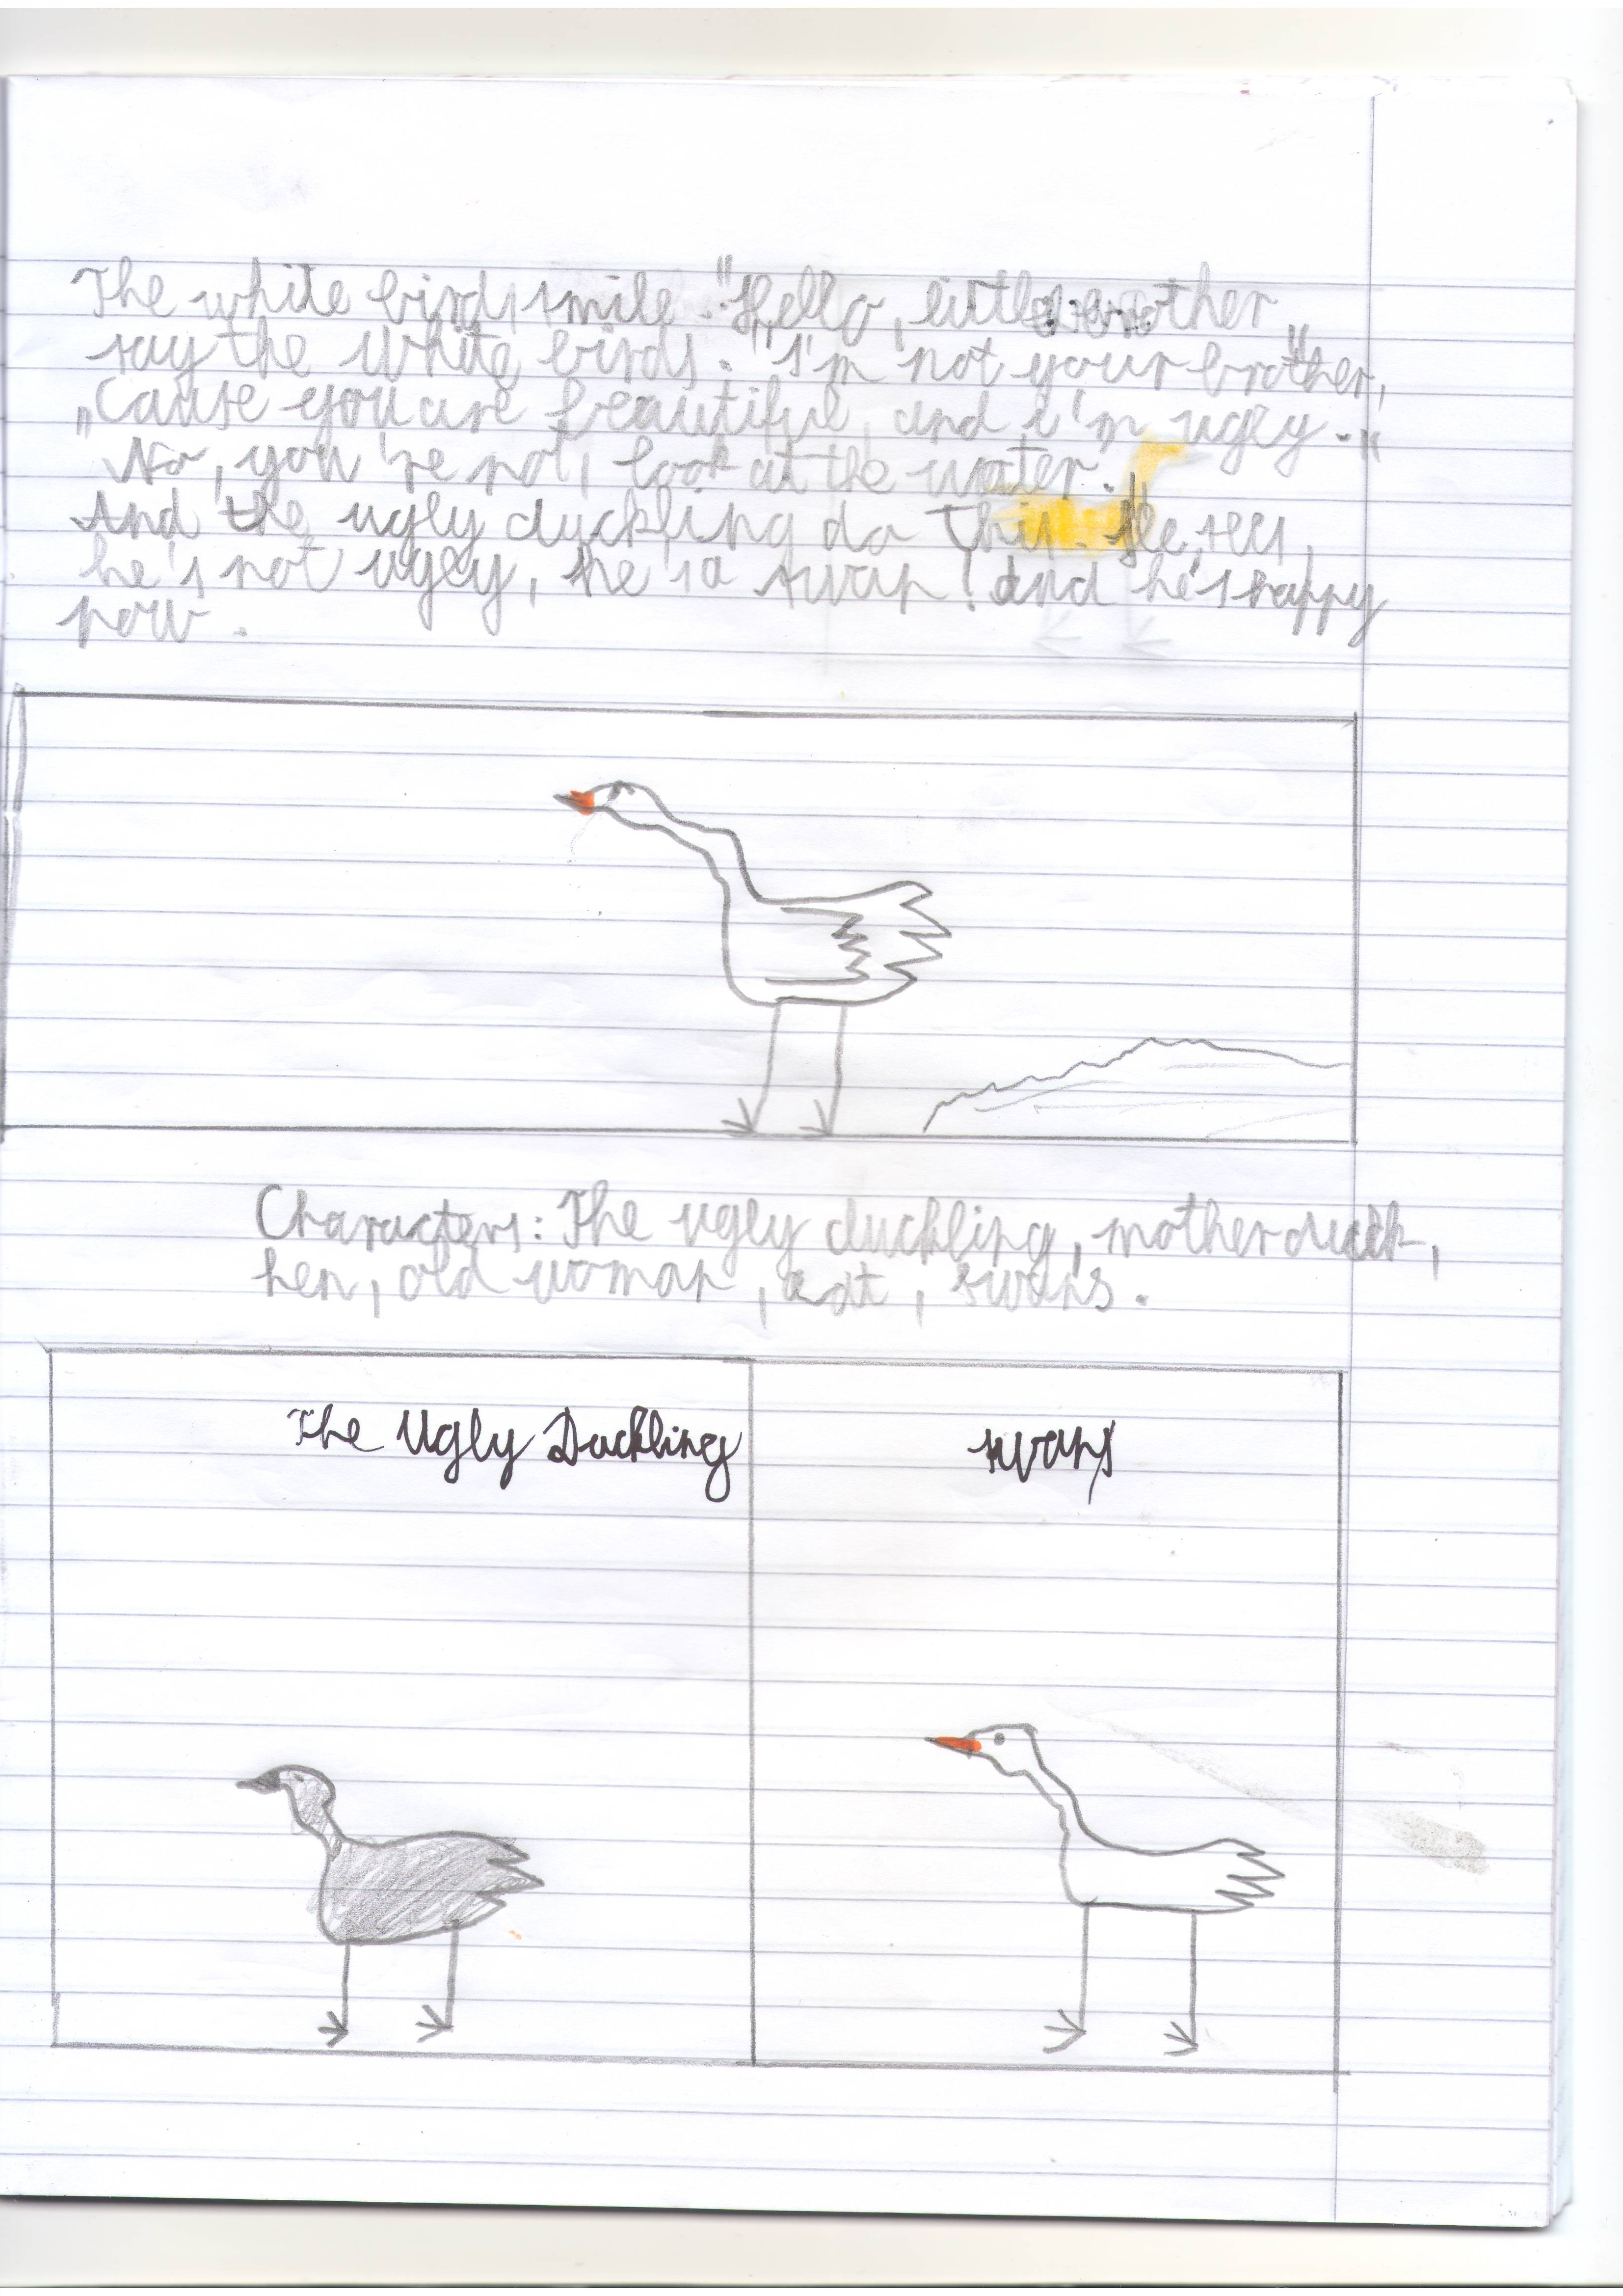 The white birds smile. "Hello, little brother"
say the white birds. "I'm not your brother,
"Cause you are beautiful and i'm ugly."
No, you're not, look at the water.
And the ugly duckling do this. He sees,
he's not ugly, he's a swan! And he's happy
now.
Characters: The ugly duckling, mother duck,
hen, old woman, cat, swans.
The Ugly Duckling
swans